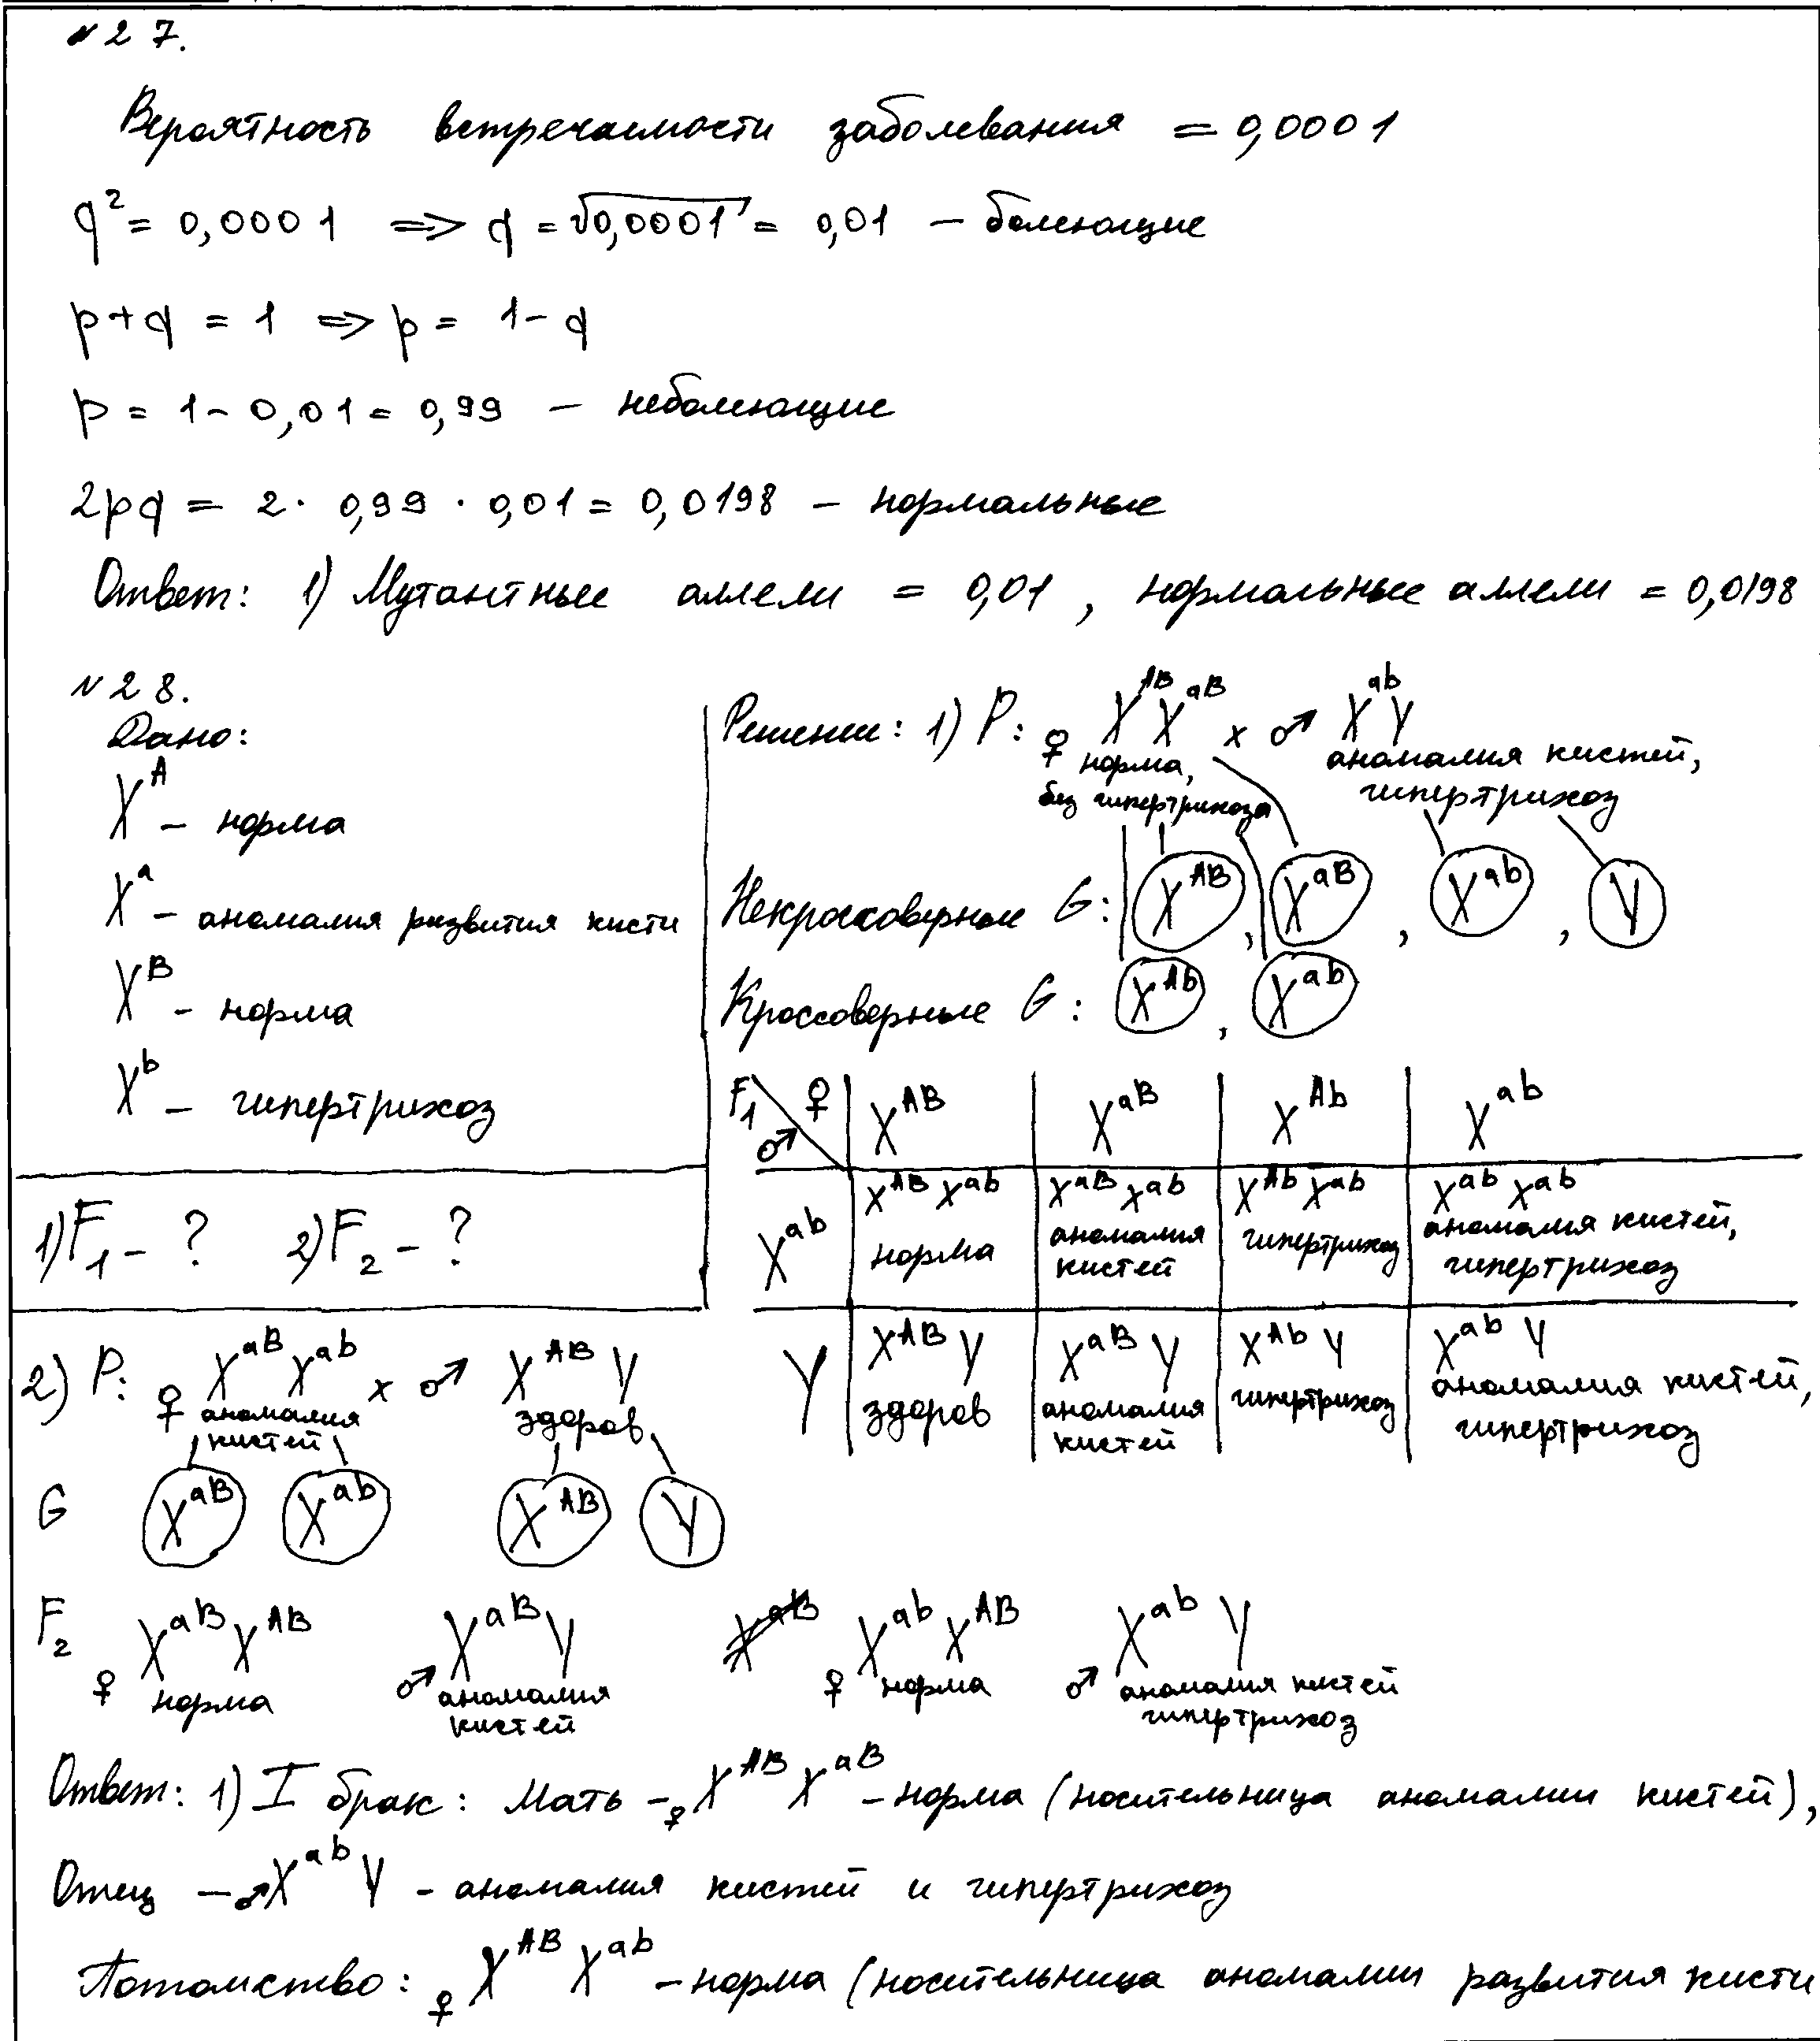 №27.
Вероятность встречаемости заболевания = 0,0001
q² = 0,0001 => q = √0,0001 = 0,01 – болеющие
p+q = 1 => p = 1-q
p = 1 - 0,01 = 0,99 – неболеющие
2pq = 2 · 0,99 · 0,01 = 0,0198 – нормальные
Ответ: 1) Мутантные аллели = 0,01 , нормальные аллели = 0,0198
№28.
Дано:
X^A – норма
X^a – аномалия развития кисти
X^B – норма
X^b – гипертрихоз
1) F₁ – ? 2) F₂ – ?
Решение: 1) P: ♀ X^AB X^aB x ♂ X^ab Y
норма, без гипертрихоза
аномалия кистей, гипертрихоз
Некроссоверные G: X^AB , X^aB , X^ab , Y
Кроссоверные G: X^Ab , X^ab
F₁ ♀ ♂ X^AB X^aB X^Ab X^ab
X^ab
X^AB X^ab норма
X^aB X^ab аномалия кистей
X^Ab X^ab гипертрихоз
X^ab X^ab аномалия кистей, гипертрихоз
Y
X^AB Y здоров
X^aB Y аномалия кистей
X^Ab Y гипертрихоз
X^ab Y аномалия кистей, гипертрихоз
2) P: ♀ X^aB X^ab x ♂ X^AB Y
аномалия кистей
здоров
G X^aB X^ab X^AB Y
F₂ ♀ X^aB X^AB ♂ X^aB Y X^aB ♀ X^ab X^AB ♂ X^ab Y
норма
аномалия кистей
норма
аномалия кистей гипертрихоз
Ответ: 1) I брак: Мать – ♀ X^AB X^aB – норма (носительница аномалии кистей),
Отец – ♂ X^ab Y – аномалия кистей и гипертрихоз
Потомство: ♀ X^AB X^ab – норма (носительница аномалии развития кисти